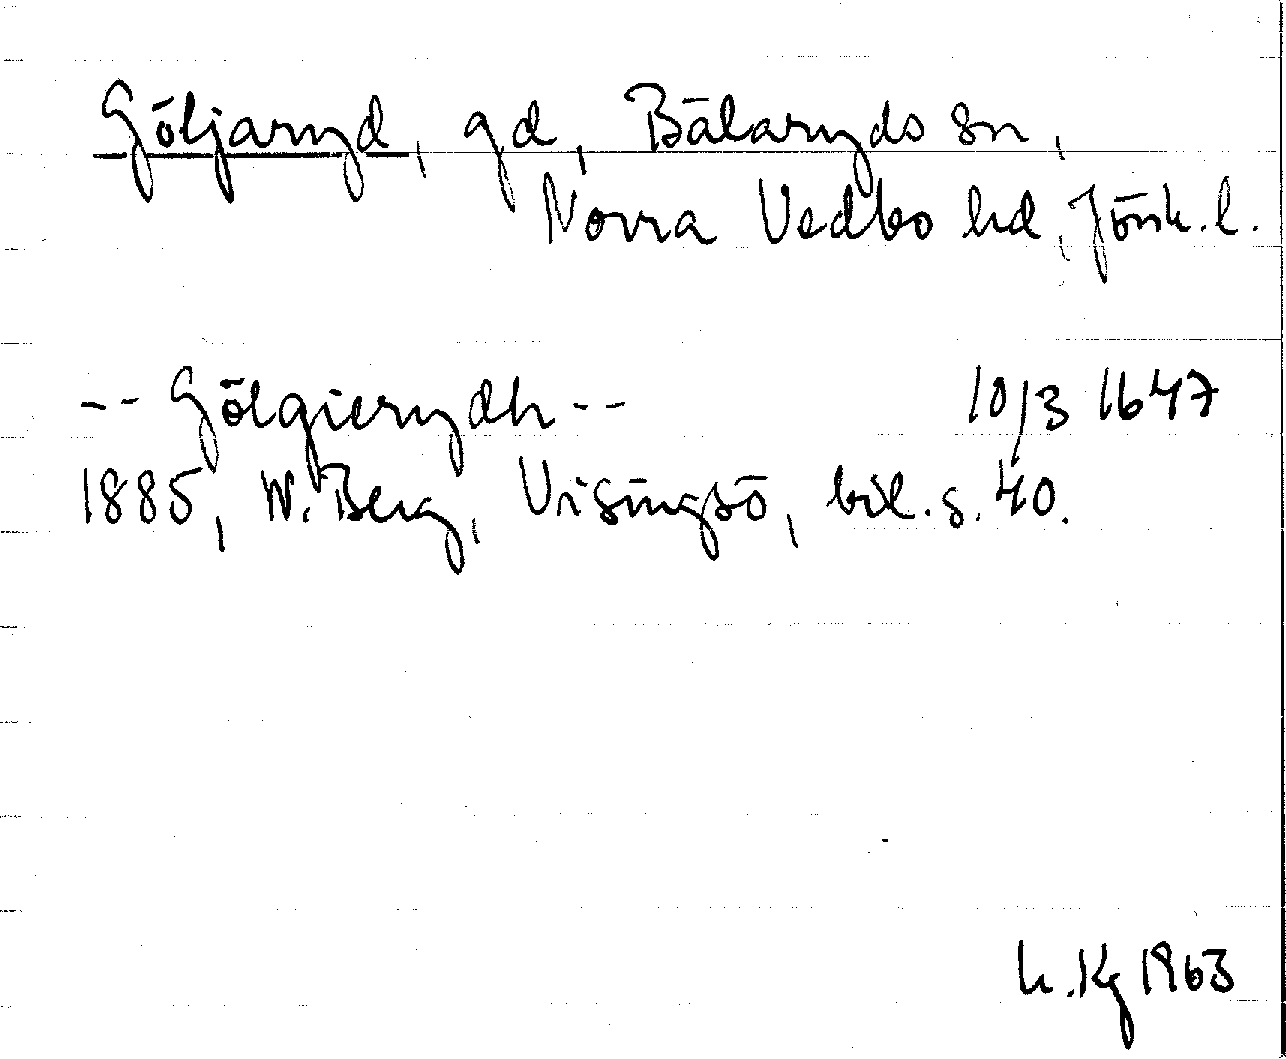 Göljaryd, gd, Bälaryds sn,
Norra Vedbo hd, Jönk. l.
-- Gölgierydh -- 10/3 1647
1885, W. Berg, Visingsö, bil. s. 40.
h. Kg 1963